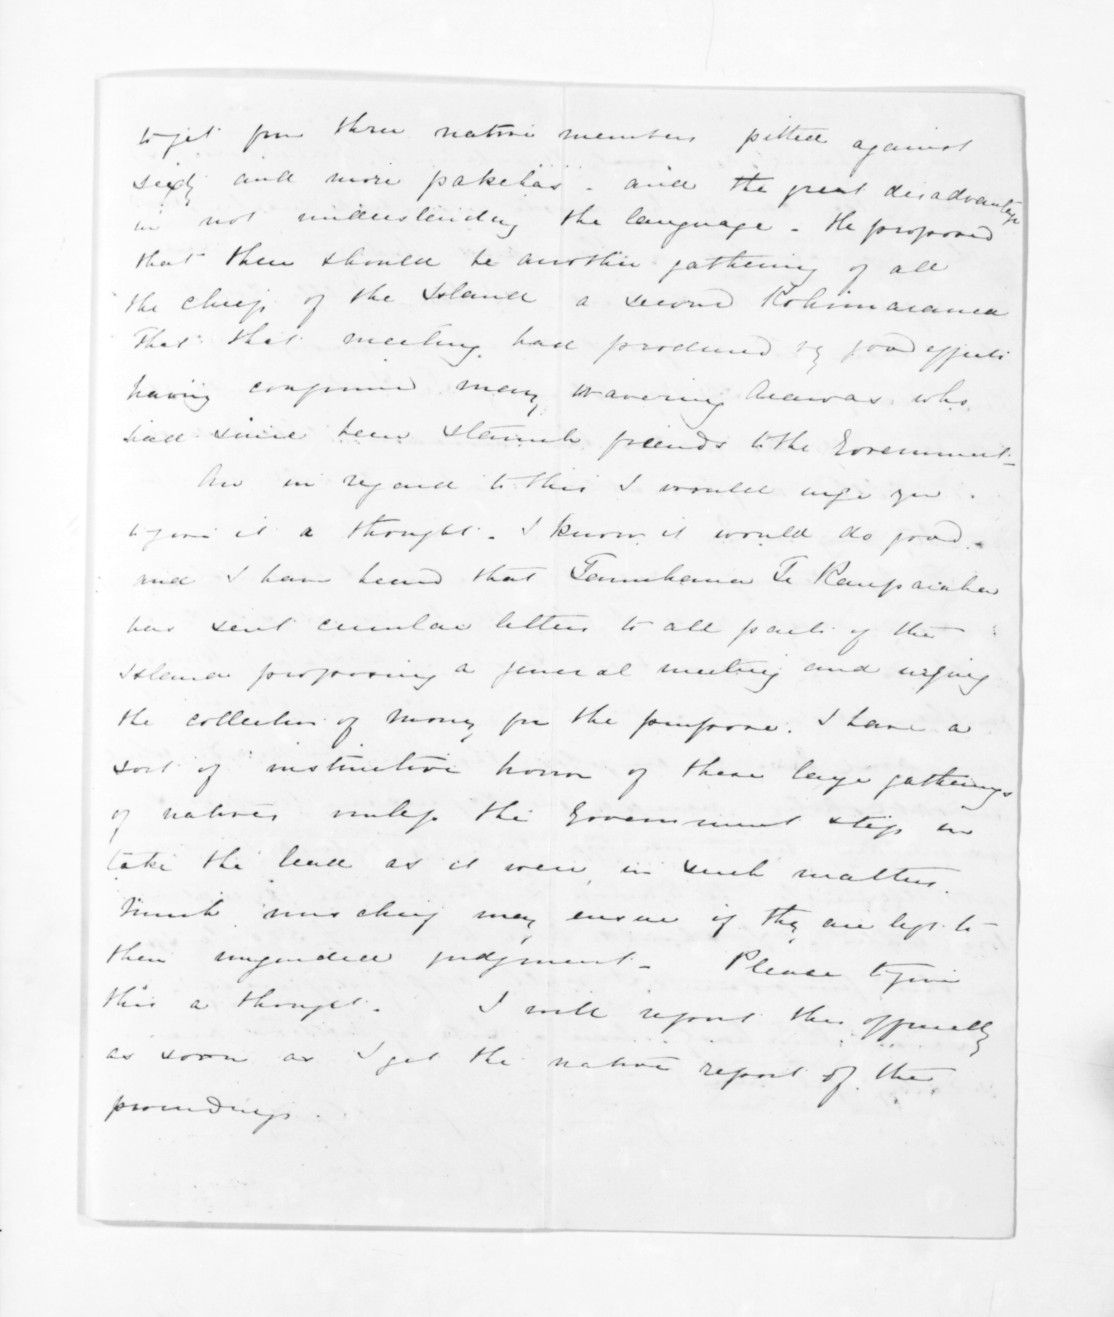 to get from three native members pitted against
sixty and more pakehas. and the great disadvantage
in not understanding the language. He proposed
that there should be another gathering of all
the chiefs of the Island a second Kohimarama
That that meeting had produced good effects
having confirmed many wavering Arawas who
had since been staunch friends to the Government.
Now in regard to this I would urge you
to give it a thought. I know it would do good.
and I have heard that Tamihana Te Rauparaha
has sent circular letters to all parts of the
Island proposing a general meeting and urging
the collection of money for the purpose. I have a
sort of instinctive horror of these large gatherings
of natives unless the Government step in
take the lead as it were, in such matters.
Much mischief may ensue if they are left to
their unguided judgment. Please to give
this a thought. I will report this officially
as soon as I get the native report of the
proceedings.